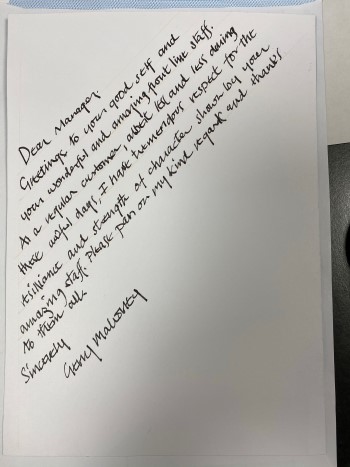 Dear Manager,
Greetings to your good self and
your wonderful and amazing front line staff.
As a regular customer, albeit less and less during
these awful days, I have tremendous respect for the
resilliance and strength of character shown by your
amazing staff. Please pass on my kind regards and thanks
to them all.
Sincerely
Gerry Maloney